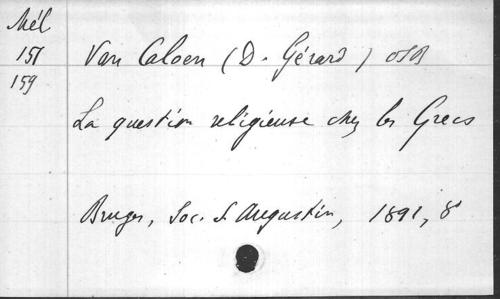 Mél
151
159
Van Caloen (D. Gérard) OSB
La question religieuse chez les Grecs
Bruges, Soc. S. Augustin, 1891, 8°